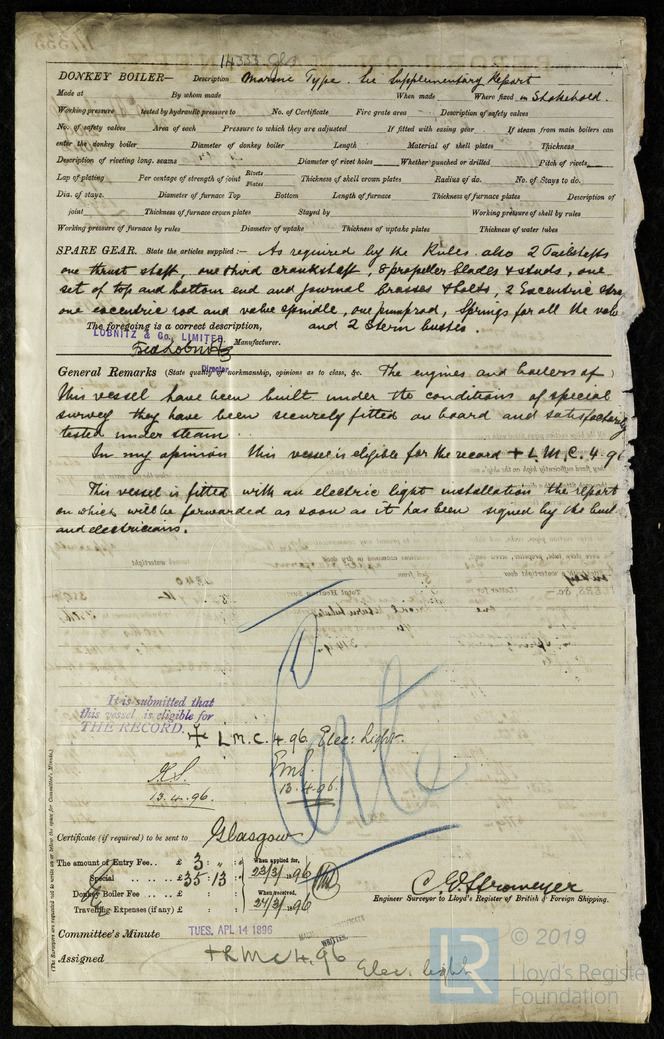 14333 Gls
DONKEY BOILER— Description Marine Type. See Supplementary Report
Made at By whom made When made Where fixed in Stokehold.
Working pressure tested by hydraulic pressure to No. of Certificate Fire grate area Description of safety valves
No. of safety valves Area of each Pressure to which they are adjusted If fitted with easing gear If steam from main boilers can
enter the donkey boiler Diameter of donkey boiler Length Material of shell plates Thickness
Description of riveting long. seams Diameter of rivet holes Whether punched or drilled Pitch of rivets
Lap of plating Per centage of strength of joint Rivets Plates Thickness of shell crown plates Radius of do. No. of Stays to do.
Dia. of stays. Diameter of furnace Top Bottom Length of furnace Thickness of furnace plates Description of
joint Thickness of furnace crown plates Stayed by Working pressure of shell by rules
Working pressure of furnace by rules Diameter of uptake Thickness of uptake plates Thickness of water tubes
SPARE GEAR. State the articles supplied:— As required by the Rules also 2 Tailshafts
one thrust shaft, one third crankshaft, 8 propeller blades & studs, one
set of top and bottom end and journal brasses & bolts, 2 Eccentric
one eccentric rod and valve spindle, one pumprod, Springs for all the
and 2 Stern bushes.
The foregoing is a correct description,
LOBNITZ & Co., LIMITED
Fred Lobnitz Manufacturer.
Director
General Remarks (State quality of workmanship, opinions as to class, &c. The engines and boilers of
this vessel have been built under the conditions of special
survey they have been securely fitted on board and satisfactorily
tested under steam.
In my opinion this vessel is eligible for the record + L.M.C. 4.96
This vessel is fitted with an electric light installation the report
on which will be forwarded as soon as it has been signed by the
and electricians.
It is submitted that
this vessel is eligible for
THE RECORD. + L.M.C. 4.96 Elec: light.
13.4.96.
13.4.96
Certificate (if required) to be sent to Glasgow
The amount of Entry Fee.. £ 3 : „ : When applied for,
Special £ 35 : 13 : 23/3/1896
Donkey Boiler Fee £ : : When received,
Travelling Expenses (if any) £ : : 24/3/1896
C. E. Stromeyer
Engineer Surveyor to Lloyd's Register of British & Foreign Shipping.
Committee's Minute TUES. APL 14 1896
WRITTEN.
Assigned + LMC 4.96 Elec. light
(The Surveyors are requested not to write on or below the space for Committee's Minute.)
LR
© 2019
Lloyd's Register
Foundation